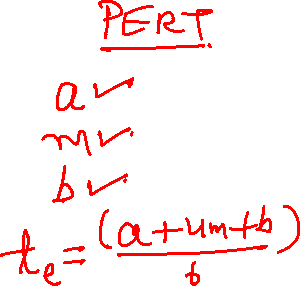 PERT
a ✓
m ✓
b ✓
te = (a+4m+b)
6